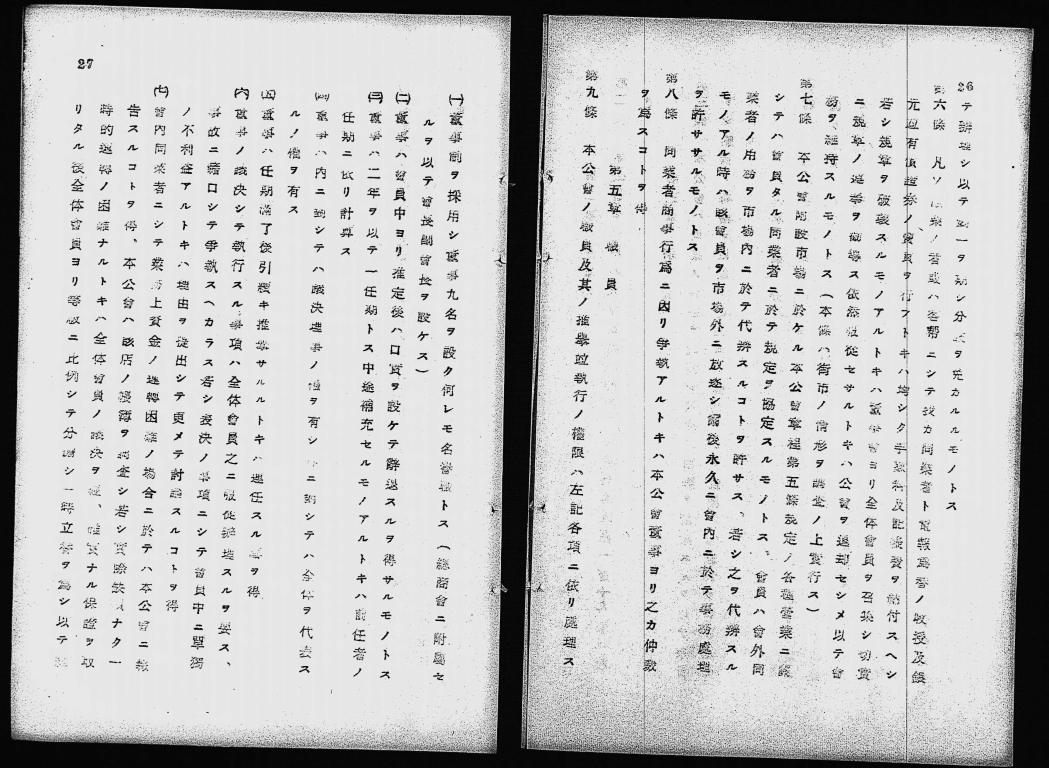 26
テ辨理シ以テ ヲ期シ分 ヲ免カルルモノトス
第六條 凡ソ 業ノ者或ハ客幇ニシテ我カ同業者ト電報為替ノ收授及銀
元直有價證券ノ賣買ヲ行フトキハ均シク手數料及記帳費ヲ納付スヘシ
若シ規章ヲ破壞スルモノアルトキハ董事會ヨリ全体會員ヲ召集シ切實
ニ規章ノ遵奉ヲ勸導ス依然服從セサルトキハ公會ヲ退却セシメ以テ會
務ヲ維持スルモノトス(本條ハ街市ノ情形ヲ調査ノ上實行ス)
第七條 本公會附設市場ニ於ケル本公會章程第五條規定ノ各種營業ニ
シテハ會員タル同業者ニ於テ規定ヲ協定スルモノトス、會員ハ會外同
業者ノ用務ヲ市場內ニ於テ代辨スルコトヲ許サス、若シ之ヲ代辨スル
モノアル時ハ該會員ヲ市場外ニ放逐シ爾後永久ニ會內ニ於テ事務處理
ヲ許ササルモノトス
第八條 同業者商事行為ニ因リ爭執アルトキハ本公會董事ヨリ之カ仲裁
ヲ為スコトヲ得
第五章 職員
第九條 本公會ノ職員及其ノ推擧竝執行ノ權限ハ左記各項ニ依リ處理ス
27
(一)董事制ヲ採用シ董事九名ヲ設ク何レモ名譽職トス(總商會ニ附屬セ
ルヲ以テ會長副會長ヲ設ケス)
(二)董事ハ會員中ヨリ推定後ハ口實ヲ設ケテ辭退スルヲ得サルモノトス
(三)董事ハ二年ヲ以テ一任期トス中途補充セルモノアルトキハ前任者ノ
任期ニ依リ計算ス
(四)董事ハ內ニ對シテハ議決理事ノ權ヲ有シ 外ニ對シテハ全体ヲ代表ス
ルノ權ヲ有ス
(五)董事ハ任期滿了後引續キ推擧サルルトキハ連任スル事ヲ得
(六)董事ノ議決シテ執行スル事項ハ全体會員之ニ服從辦理スルヲ要ス、
事故ニ藉口シテ爭執スヘカラス若シ表決ノ事項ニシテ會員中ニ單獨
ノ不利益アルトキハ理由ヲ提出シテ更メテ討論スルコトヲ得
(七)會內同業者ニシテ業務上資金ノ運轉困難ノ場合ニ於テハ本公會ニ報
告スルコトヲ得、本公會ハ該店ノ帳簿ヲ調査シ若シ實際缺損ナク一
時的運轉ノ困難ナルトキハ全体會員ノ議決ヲ經、確實ナル保證ヲ取
リタル後全体會員ヨリ等級ニ比例シテ分擔シ一時立替ヲ為シ以テ